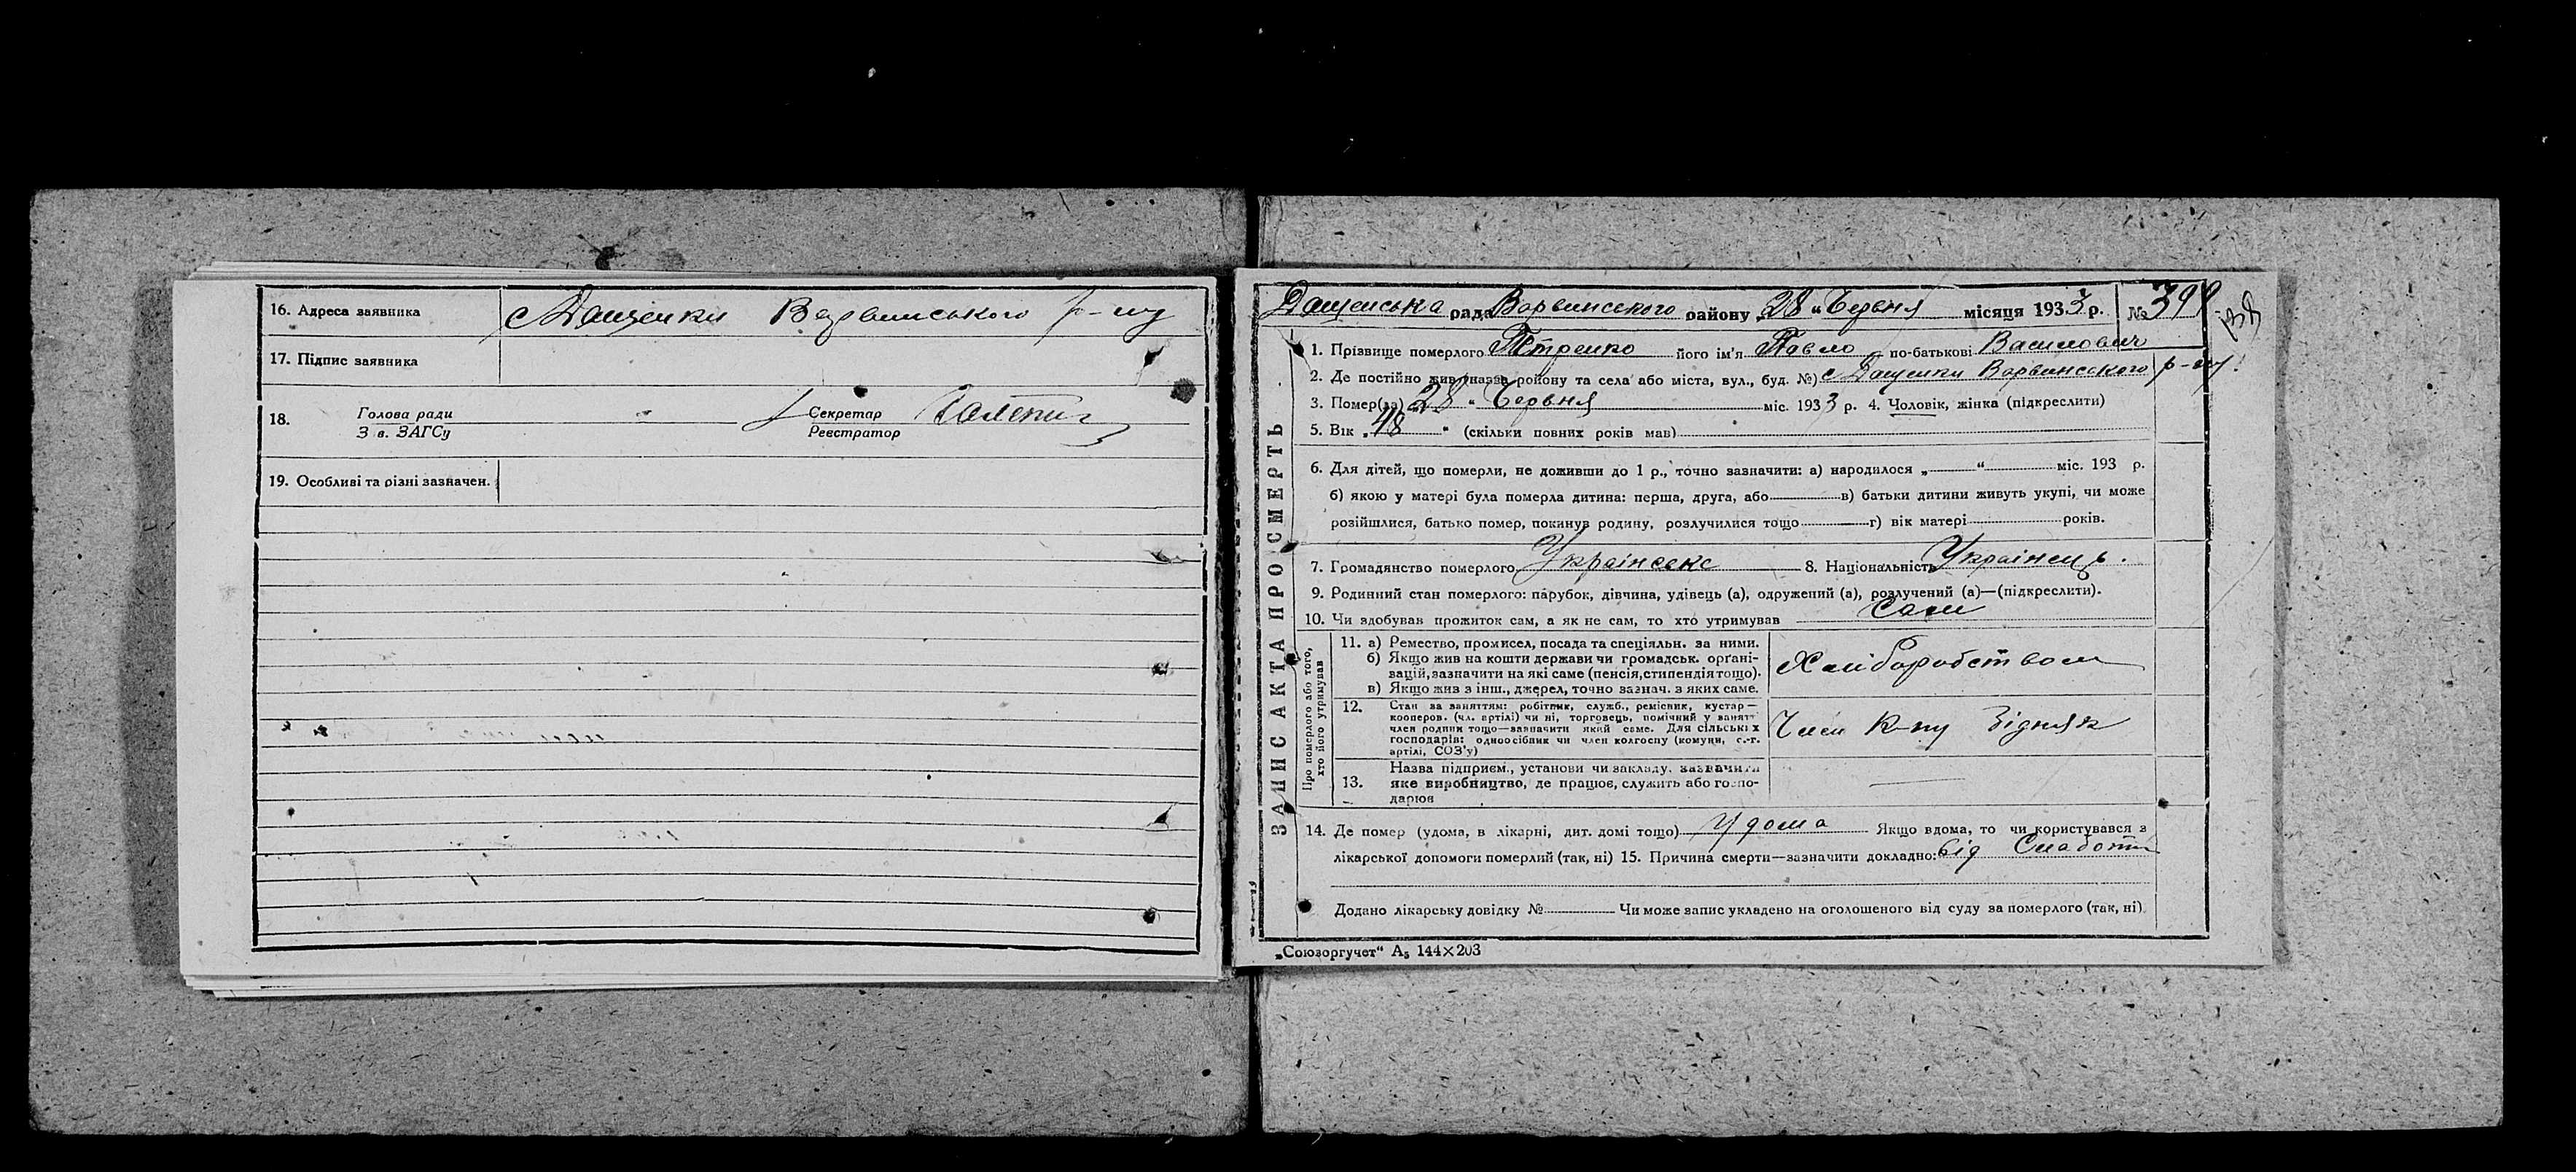 16. Адреса заявника с Дащенки Варвинського р-ну
17. Підпис заявника
18. Голова ради Секретар
З в. ЗАГСу Реєстратор
19. Особливі та різні зазначен.
Дащенська рада Варвинського району „28 “ Червня місяця 1933 р. №
ЗАПИС АКТА ПРО СМЕРТЬ
1. Прізвище померлого Петренко його ім'я Павло по-батькові Василович
2. Де постійно жив (назва району та села або міста, вул., буд. №) с Дащенки Варвинського р-ну.
3. Помер(ла) „28 “ Червня міс. 1933 р. 4. Чоловік, жінка (підкреслити)
5. Вік „48 “ (скільки повних років мав)
6. Для дітей, що померли, не доживши до 1 р., точно зазначити: а) народилося „ “ міс. 193 р.
б) якою у матері була померла дитина: перша, друга, або в) батьки дитини живуть укупі, чи може
розійшлися, батько помер, покинув родину, розлучилися тощо г) вік матері років.
7. Громадянство померлого Українське 8. Національність Українець.
9. Родинний стан померлого: парубок, дівчина, удівець (а), одружений (а), розлучений (а)—(підкреслити).
10. Чи здобував прожиток сам, а як не сам, то хто утримував Сам
Про померлого або того,
хто його утримував
11. а) Ремество, промисел, посада та спеціяльн. за ними.
б) Якщо жив на кошти держави чи громадськ. органі-
зацій, зазначити на які саме (пенсія, стипендія тощо).
в) Якщо жив з інш., джерел, точно зазнач. з яких саме.
Хліборобством
12. Стан за заняттям: робітник, служб., ремісник, кустар—
кооперов. (чл. артілі) чи ні, торговець, помічний у занятт
член родини тощо—зазначити який саме. Для сільських
господарів: одноосібник чи член колгоспу (комуни, с.-г.
артілі, СОЗ'у)
Член К-пу Бідняк
13. Назва підприєм., установи чи закладу, зазначити
яке виробництво, де працює, служить або госпо-
дарює
14. Де помер (удома, в лікарні, дит. домі тощо) Удома Якщо вдома, то чи користувався з
лікарської допомоги померлий (так, ні) 15. Причина смерти—зазначити докладно: від Слаботи
Додано лікарську довідку № Чи може запис укладено на оголошеного від суду за померлого (так, ні)
„Союзоргучет“ А₅ 144×203